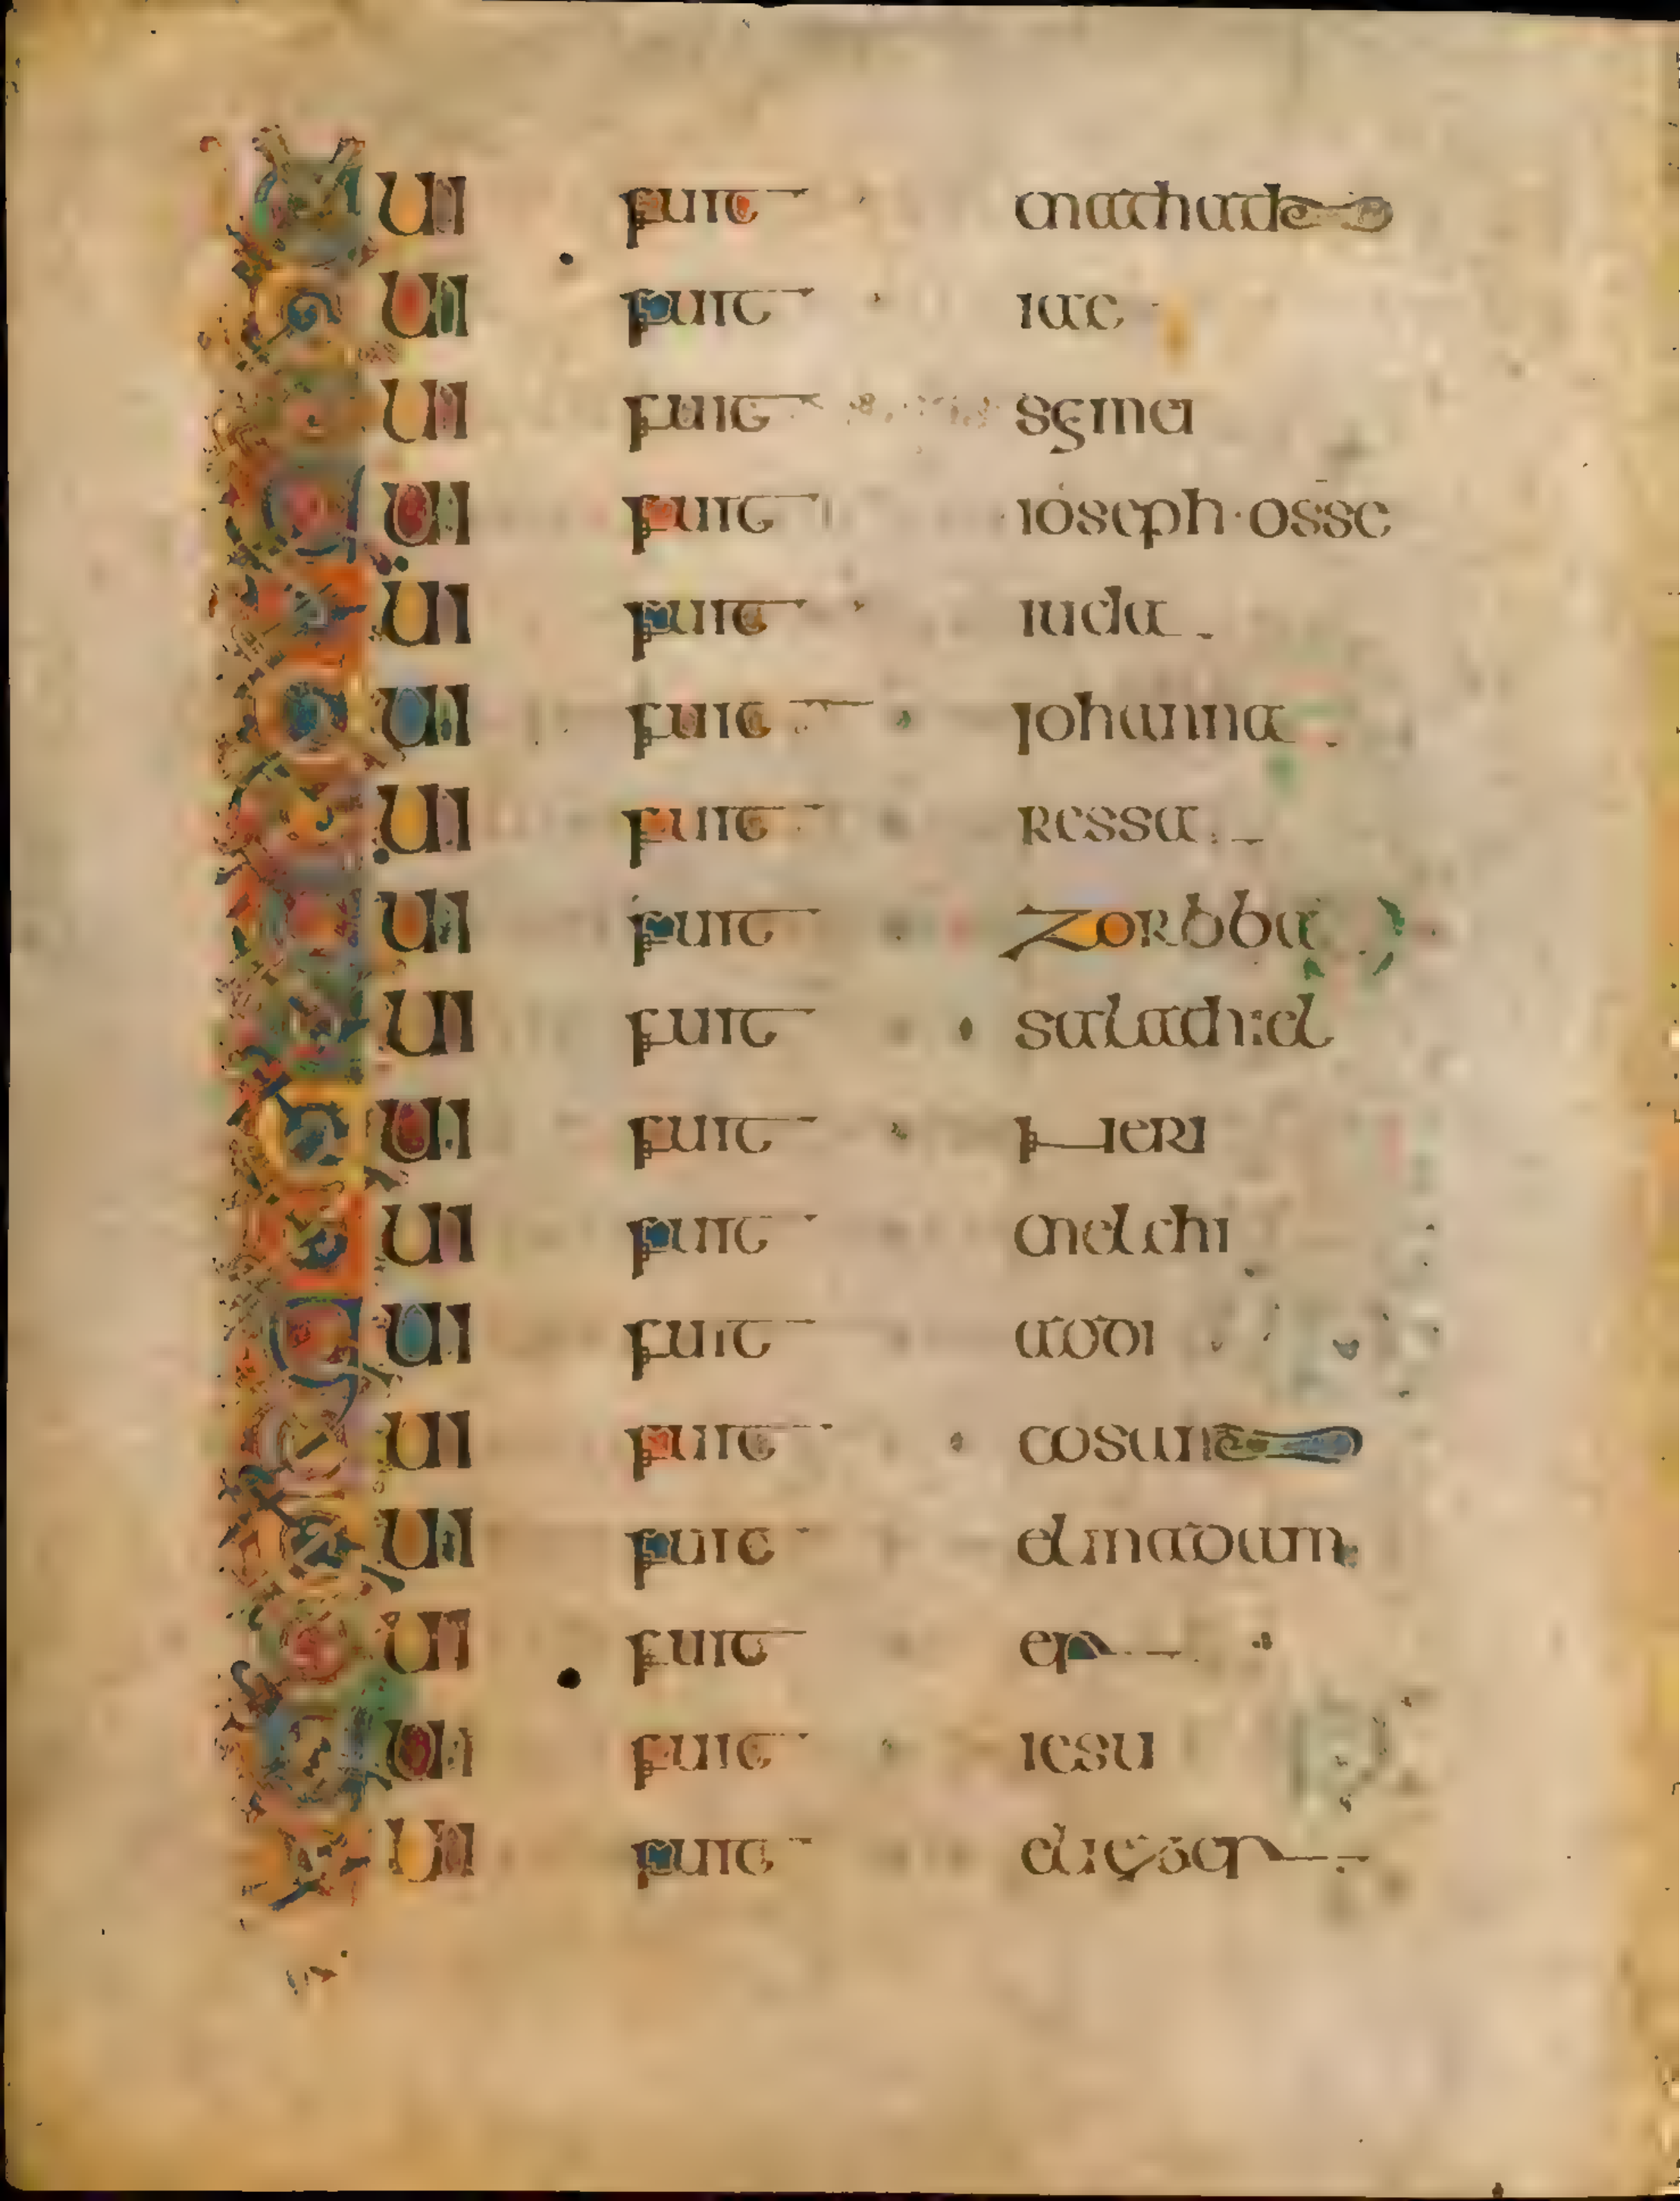 QUI fuit mathathde
QUI fuit iae
QUI fuit semei
QUI fuit ioseph·osse
QUI fuit iuda
QUI fuit iohanna
QUI fuit Ressa
QUI fuit ZORbba
QUI fuit salathiel
QUI fuit HERI
QUI fuit melchi
QUI fuit addi
QUI fuit cosane
QUI fuit elmadam
QUI fuit er
QUI fuit iesu
QUI fuit eliezer